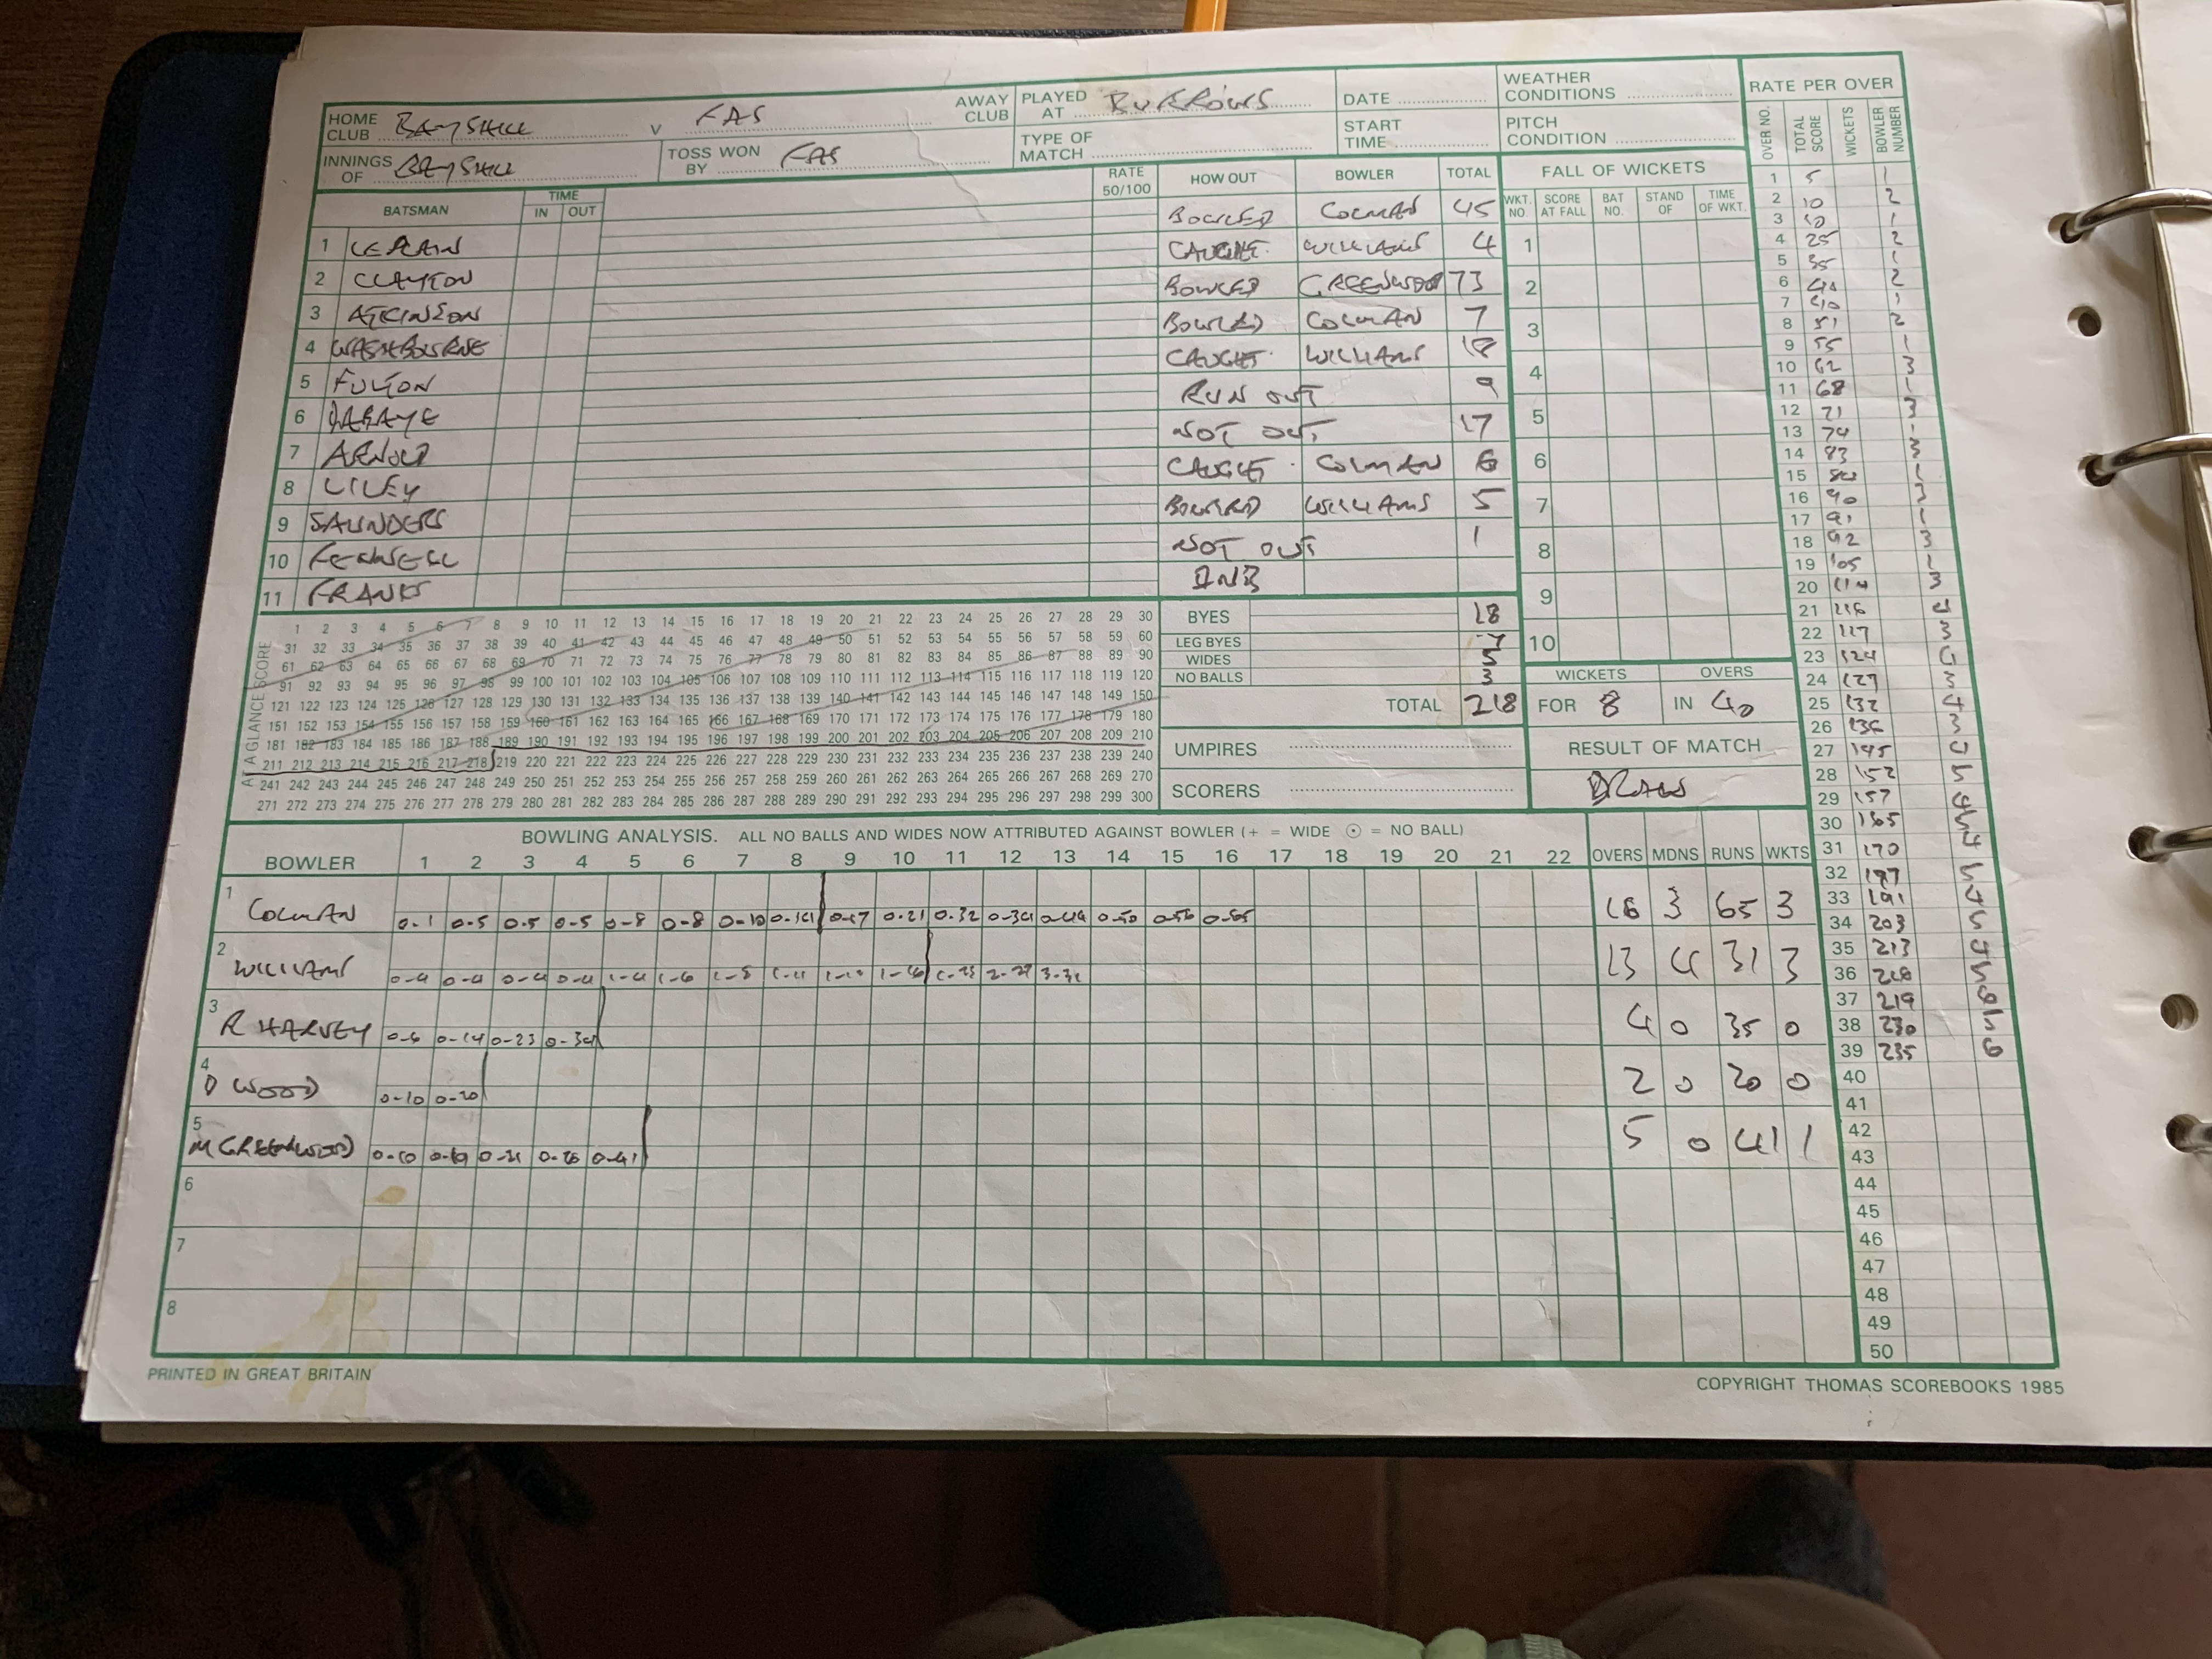 HOME CLUB BAYSHILL V FAS AWAY CLUB PLAYED AT BURROWS DATE WEATHER CONDITIONS RATE PER OVER
INNINGS OF BAYSHILL TOSS WON BY FAS TYPE OF MATCH START TIME PITCH CONDITION
OVER NO. TOTAL SCORE WICKETS BOWLER NUMBER
BATSMAN TIME IN OUT RATE 50/100 HOW OUT BOWLER TOTAL FALL OF WICKETS
WKT. NO. SCORE AT FALL BAT NO. STAND OF TIME OF WKT.
BOWLED COLMAN 45
1 CAUGHT WILLIAMS 4
2 CLAYTON BOWLED GREENWOOD 73
3 ATKINSON BOWLED COLMAN 7
4 WASHBOURNE CAUGHT WILLIAMS 18
5 FULTON RUN OUT 9
6 NOT OUT 17
7 ARNOLD CAUGHT COLMAN 6
8 LILEY BOWLED WILLIAMS 5
9 SAUNDERS NOT OUT 1
10 FENNELL DNB
11 FRANKS
1 2 3 4 5 6 7 8 9 10
AT A GLANCE SCORE
1 2 3 4 5 6 7 8 9 10 11 12 13 14 15 16 17 18 19 20 21 22 23 24 25 26 27 28 29 30
31 32 33 34 35 36 37 38 39 40 41 42 43 44 45 46 47 48 49 50 51 52 53 54 55 56 57 58 59 60
61 62 63 64 65 66 67 68 69 70 71 72 73 74 75 76 77 78 79 80 81 82 83 84 85 86 87 88 89 90
91 92 93 94 95 96 97 98 99 100 101 102 103 104 105 106 107 108 109 110 111 112 113 114 115 116 117 118 119 120
121 122 123 124 125 126 127 128 129 130 131 132 133 134 135 136 137 138 139 140 141 142 143 144 145 146 147 148 149 150
151 152 153 154 155 156 157 158 159 160 161 162 163 164 165 166 167 168 169 170 171 172 173 174 175 176 177 178 179 180
181 182 183 184 185 186 187 188 189 190 191 192 193 194 195 196 197 198 199 200 201 202 203 204 205 206 207 208 209 210
211 212 213 214 215 216 217 218 219 220 221 222 223 224 225 226 227 228 229 230 231 232 233 234 235 236 237 238 239 240
241 242 243 244 245 246 247 248 249 250 251 252 253 254 255 256 257 258 259 260 261 262 263 264 265 266 267 268 269 270
271 272 273 274 275 276 277 278 279 280 281 282 283 284 285 286 287 288 289 290 291 292 293 294 295 296 297 298 299 300
BYES 18
LEG BYES 7
WIDES 5
NO BALLS 3
TOTAL 218
WICKETS OVERS
FOR 8 IN 40
UMPIRES
SCORERS
RESULT OF MATCH
DRAW
BOWLING ANALYSIS. ALL NO BALLS AND WIDES NOW ATTRIBUTED AGAINST BOWLER (+ = WIDE ⊙ = NO BALL)
BOWLER 1 2 3 4 5 6 7 8 9 10 11 12 13 14 15 16 17 18 19 20 21 22 OVERS MDNS RUNS WKTS
1 COLMAN 0-1 0-5 0-5 0-5 0-8 0-8 0-10 0-17 0-21 0-32 0-50 0-56 16 3 65 3
2 WILLIAMS 0-4 0-4 0-4 0-4 1-4 1-6 1-8 1-11 3-31 13 4 31 3
3 R HARVEY 0-6 0-14 0-23 0-34 4 0 35 0
4 D WOOD 0-10 0-20 2 0 20 0
5 M GREENWOOD 0-10 0-19 0-41 5 0 41 1
6
7
8
1 5 1
2 10 2
3 10 1
4 25 2
5 35 1
6 2
7 40 1
8 51 2
9 55 1
10 62 3
11 68 1
12 71 3
13 74 1
14 83 3
15 1
16 90 3
17 91 1
18 92 3
19 105 1
20 114 3
21 116 4
22 117 3
23 124 4
24 127 3
25 132 4
26 136 3
27 145 4
28 152 5
29 157 4
30 165 5
31 170 4
32 5
33 191 4
34 203 5
35 213 4
36 5
37 219 6
38 230 5
39 235 6
40
41
42
43
44
45
46
47
48
49
50
PRINTED IN GREAT BRITAIN
COPYRIGHT THOMAS SCOREBOOKS 1985